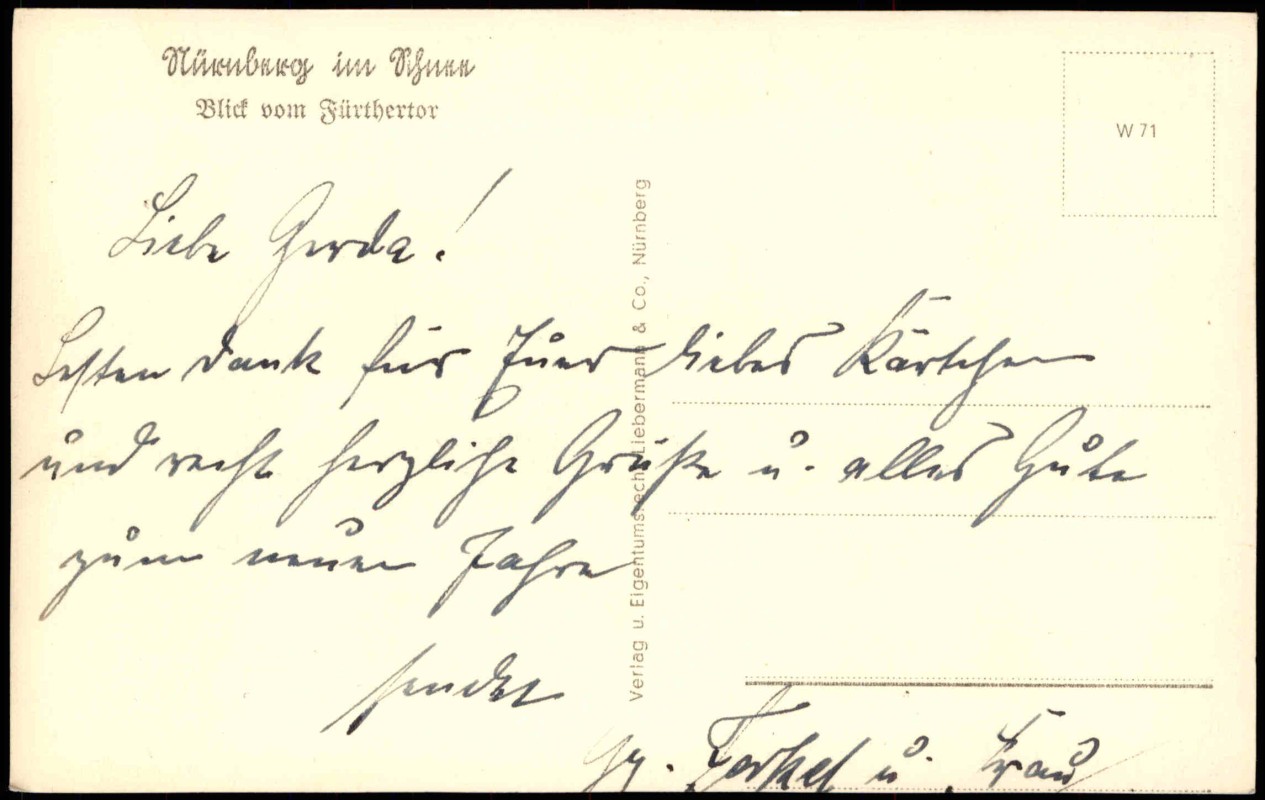 Nürnberg im Schnee
Blick vom Fürthertor
W 71
Liebe Gerda!
Besten Dank für Euer liebes Kärtchen
und recht herzliche Grüße u. alles Gute
zum neuen Jahre
sendet
Gg. u. Frau
Verlag u. Eigentumsrecht Liebermann & Co., Nürnberg